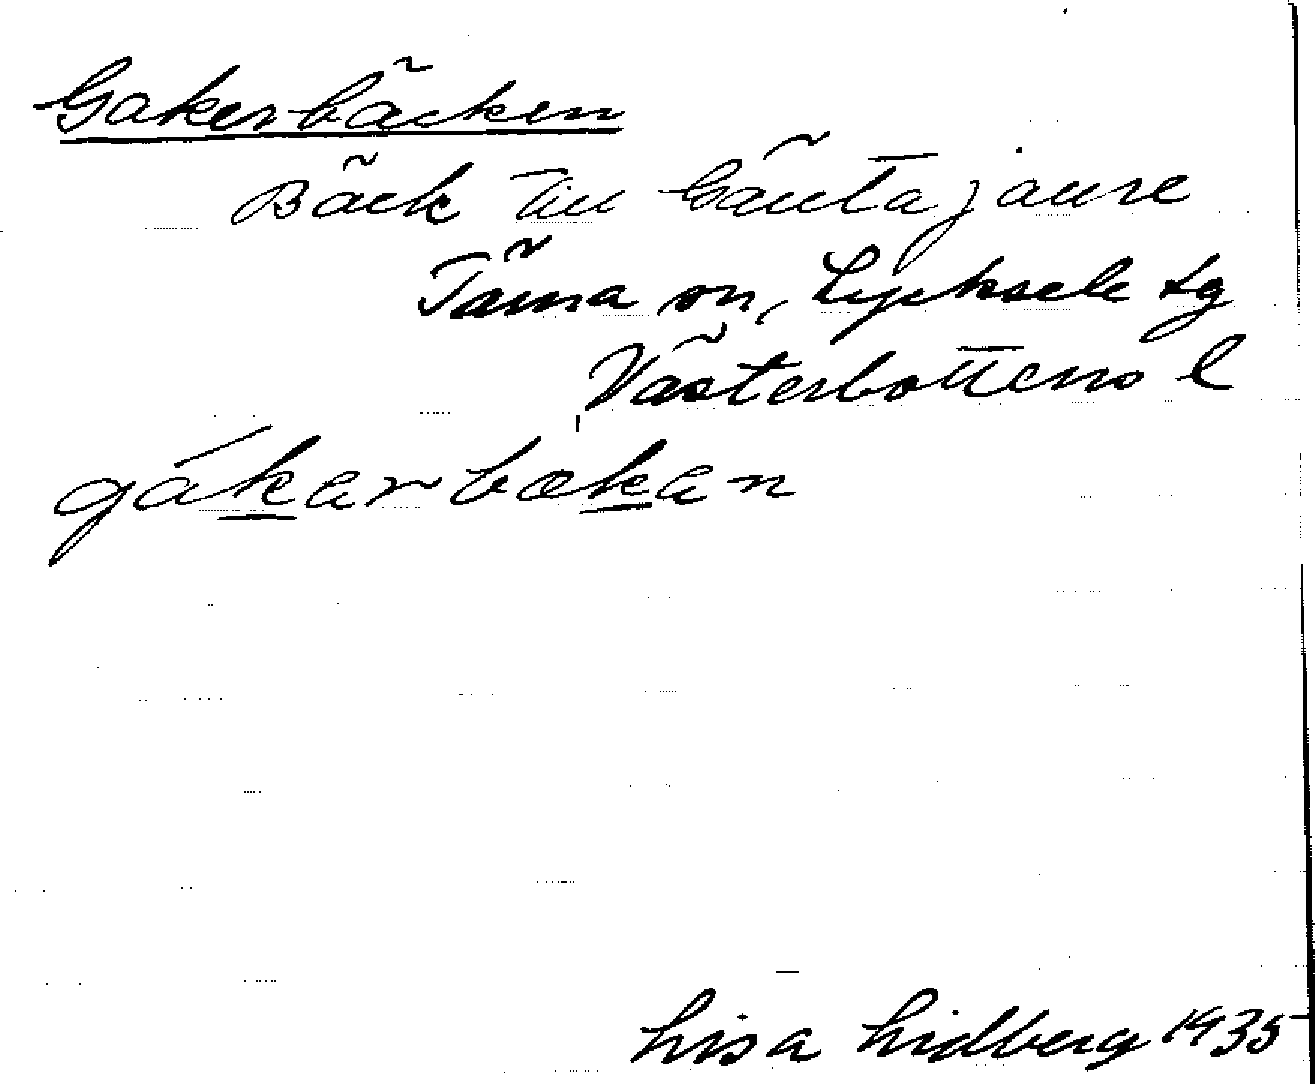 Gakerbäcken
Bäck till Gäutajaure
Tärna sn, Lycksele lg
Västerbottens l
gákarbækan
Lisa Lidberg 1935